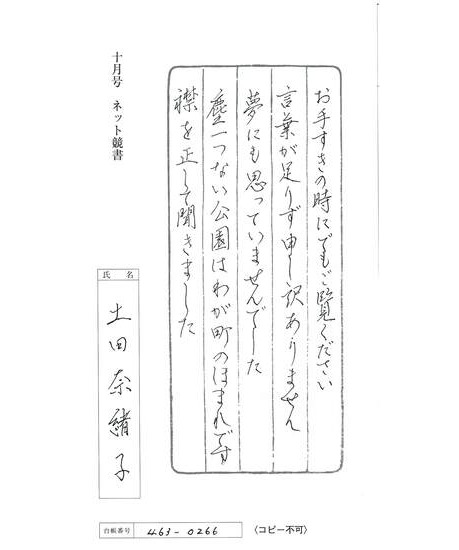 お手すきの時にでもご覧ください
言葉が足りず申し訳ありません
夢にも思っていませんでした
塵一つない公園はわが町のほまれです
襟を正して聞きました
十月号 ネット競書
氏名
土田奈緒子
台帳番号 463-0266
〈コピー不可〉